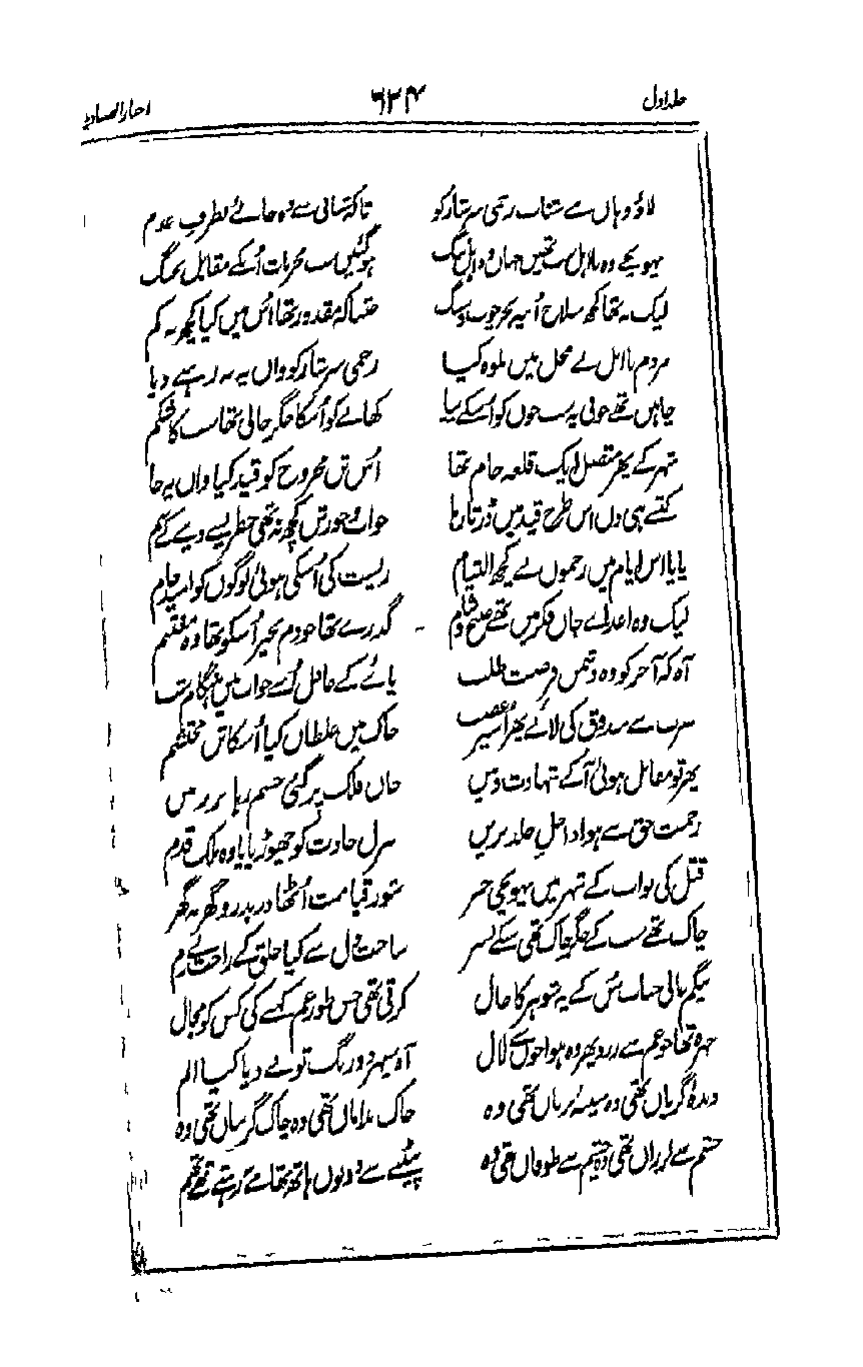 جلد اول ۶۲۴ اخبار الصنادید
لاؤ وہاں سے شتاب زخمی سرشار کو تاکہ شتابی سے وہ جائے بطرفِ عدم
پہونچے وہ بلبل تھیں جہاں وہ اہل ہوگئیں سب مجربات اُسکے مقابل بجنگ
لیک نہ تھا کچھ سلاح اُنپہ بجز چوب و سنگ جتنا کہ مقدور تھا اُس میں کیا کچھ نہ کم
مردم نااہل نے محل میں بلوہ کیا زخمی سرشار کو واں پہ نہ رہنے دیا
چاہیں تھے خونی یہ سب خوں کو اُسکے پیا کھانے کو اُسکا جگر خالی تھا سب کا شکم
شہر کے پھر متصل ایک قلعہ خام تھا اُس تن مجروح کو قید کیا واں پہ جا
کتنے ہی دن اس طرح قید میں ڈرتا رہا
پایا اس ایام میں زخموں نے کچھ التیام زیست کی اُسکی ہوئی لوگوں کو امید خام
لیک وہ اعدائے جاں فکر میں تھے صبح و شام گذرے تھا جو دم بخیر اُسکو تھا وہ مغتنم
آہ کہ آخر کو وہ دشمن فرصت طلب پا کے کے غافل اُسے خواب میں ہنگام شب
ضرب سے بندوق کی لائے پھر اُسپر غضب خاک میں غلطاں کیا اُسکا تن محتشم
پھر تو مقابل ہوئی آکے شہادت وہیں جاں فلک پر گئی جسم رہا بر زمیں
رحمت حق سے ہوا داخلِ خلد بریں منزل حادث کو چھوڑ پایا وہ ملک قدم
قتل کی نواب کے شہر میں پہونچی خبر شور قیامت اُٹھا در بدر و گھر بہ گھر
چاک تھے سب کے جگر خاک تھی سب کے بسر ساحت دل سے کیا خلق کے راحت نے رم
بیگم عالی جناب سُن کے یہ شوہر کا حال کرتی تھی جس طور غم کہنے کی کس کو مجال
چہرہ تھا جو غم سے زرد پھر وہ ہوا خوں سے لال آہ سپہر دو رنگ تونے دیا کیا الم
دیدۂ گریاں تھی وہ سینۂ بریاں تھی وہ خاک بداماں تھی وہ چاک گریباں تھی وہ
جسم سے لرزاں تھی وہ چشم سے طوفاں تھی وہ پیٹنے سے دونوں ہاتھ تھامے نہ رہتے تھے تھم